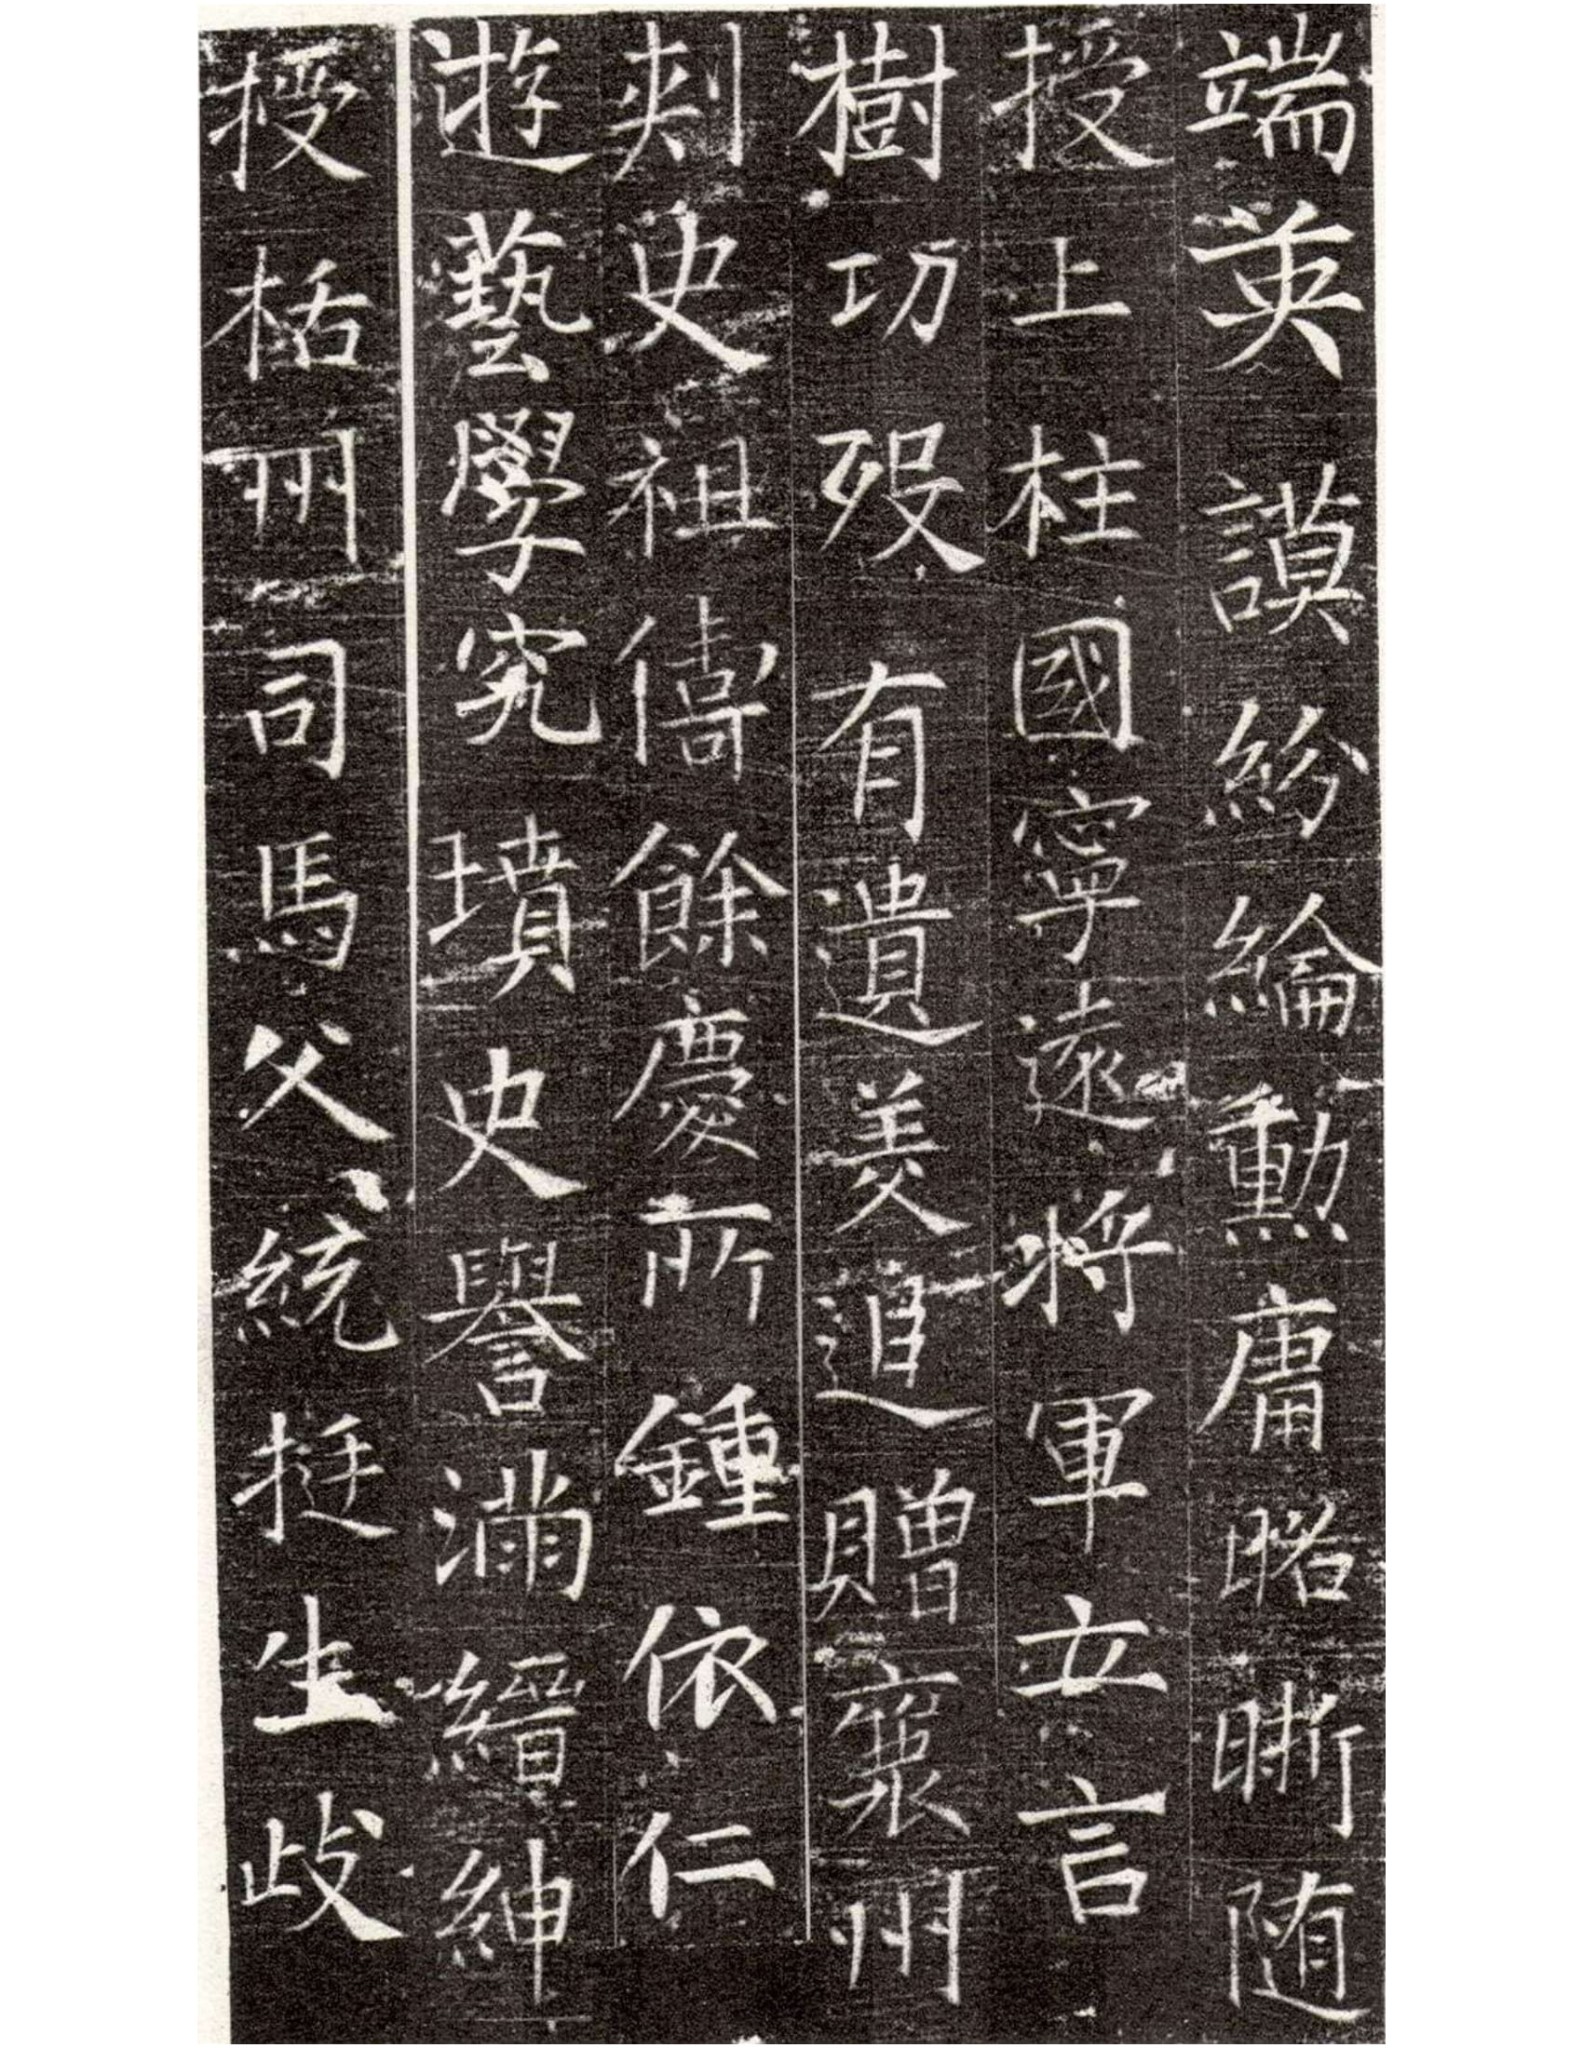 端英謨紛綸勳庸晧晣随
授上柱國寧遠將軍立言
樹功歿有遺美追贈襄州
刾史祖儔餘慶所鍾依仁
遊藝學究墳史譽滿縉紳
授栝州司馬父統挺生歧